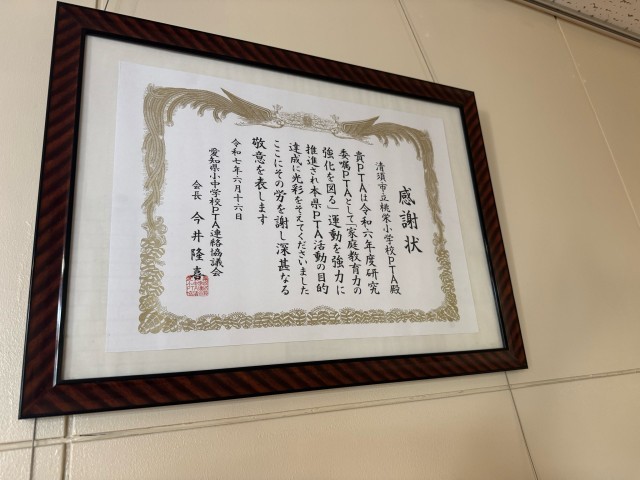 感謝状
清須市立桃栄小学校PTA殿
貴PTAは令和六年度研究
委嘱PTAとして「家庭教育力の
強化を図る」運動を強力に
推進され本県PTA活動の目的
達成に光彩をそえてくださいました
ここにその労を謝し深甚なる
敬意を表します
令和七年六月十六日
愛知県小中学校PTA連絡協議会
会長 今井隆喜